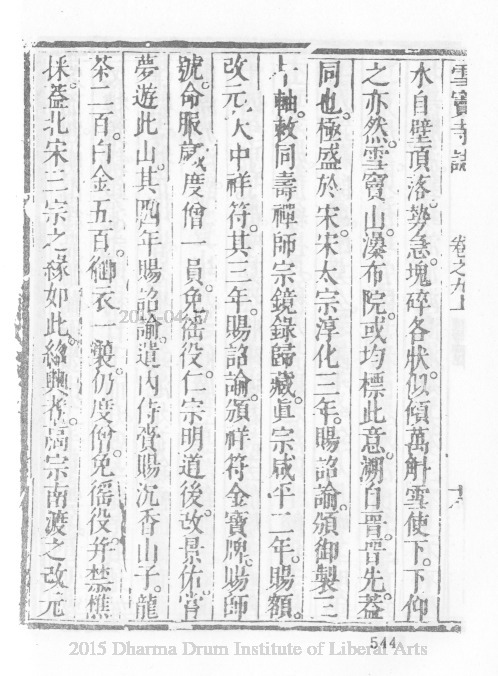 雪竇寺誌 卷之九上
水自壁頂落勢急塊碎各狀似傾萬斛雪使下下仰
之亦然雪竇山瀑布院或均標此意溯自晉晉先蓋
同也極盛於宋宋太宗淳化三年賜詔諭頒御製三
十軸敕同壽禪師宗鏡錄歸藏眞宗咸平二年賜額
改元大中祥符其三年賜詔諭頒祥符金寶牌賜師
號命服歲度僧一員免徭役仁宗明道後改景佑嘗
夢遊此山其四年賜詔諭遣內侍賫賜沉香山子龍
茶二百白金五百御衣一襲仍度僧免徭役并禁樵
採蓋北宋三宗之緣如此紹興者高宗南渡之改元
544
2015 Dharma Drum Institute of Liberal Arts